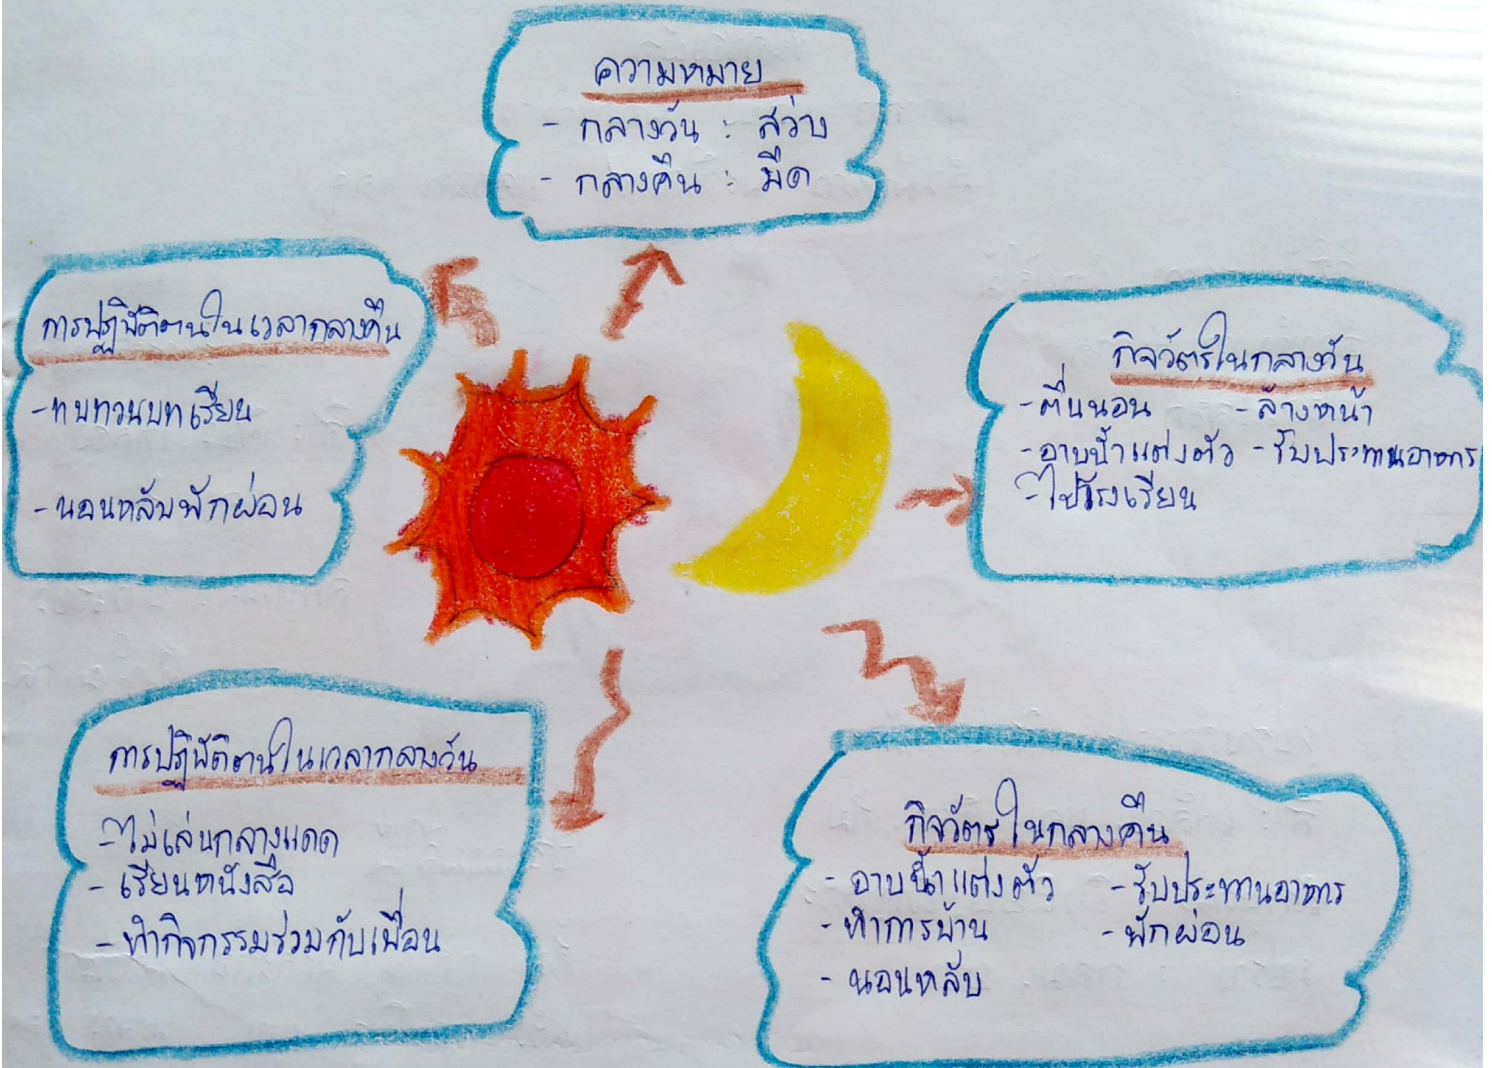 ความหมาย
- กลางวัน : สว่าง
- กลางคืน : มืด
การปฏิบัติตนในเวลากลางคืน
- ทบทวนบทเรียน
- นอนหลับพักผ่อน
กิจวัตรในกลางวัน
- ตื่นนอน - ล้างหน้า
- อาบน้ำแต่งตัว - รับประทานอาหาร
- ไปโรงเรียน
การปฏิบัติตนในเวลากลางวัน
- ไม่เล่นกลางแดด
- เรียนหนังสือ
- ทำกิจกรรมร่วมกับเพื่อน
กิจวัตรในกลางคืน
- อาบน้ำแต่งตัว - รับประทานอาหาร
- ทำการบ้าน - พักผ่อน
- นอนหลับ